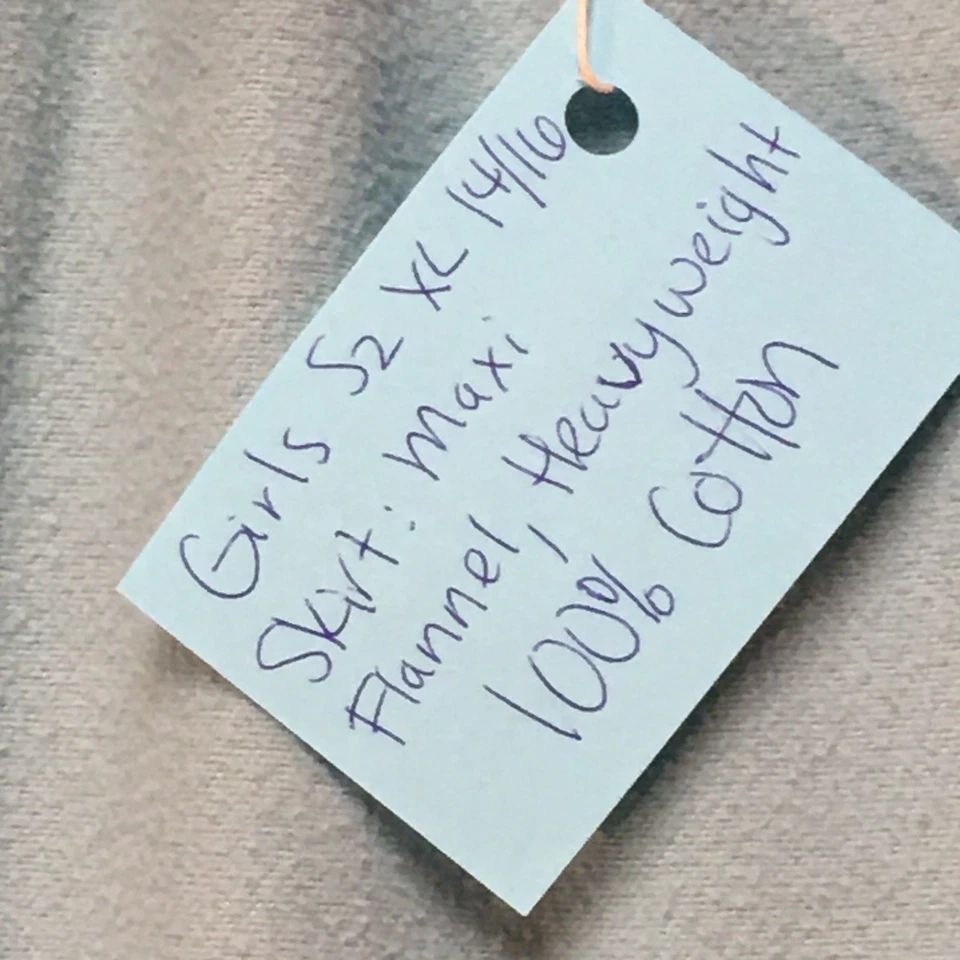 Girls Sz XL 14/16
Skirt: Maxi
Flannel, Heavyweight
100% Cotton